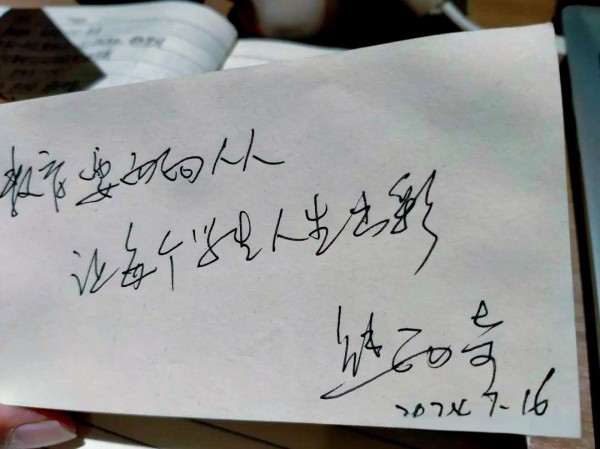 教育要面向人人
让每个学生人生出彩
熊丙奇
2024 7-16